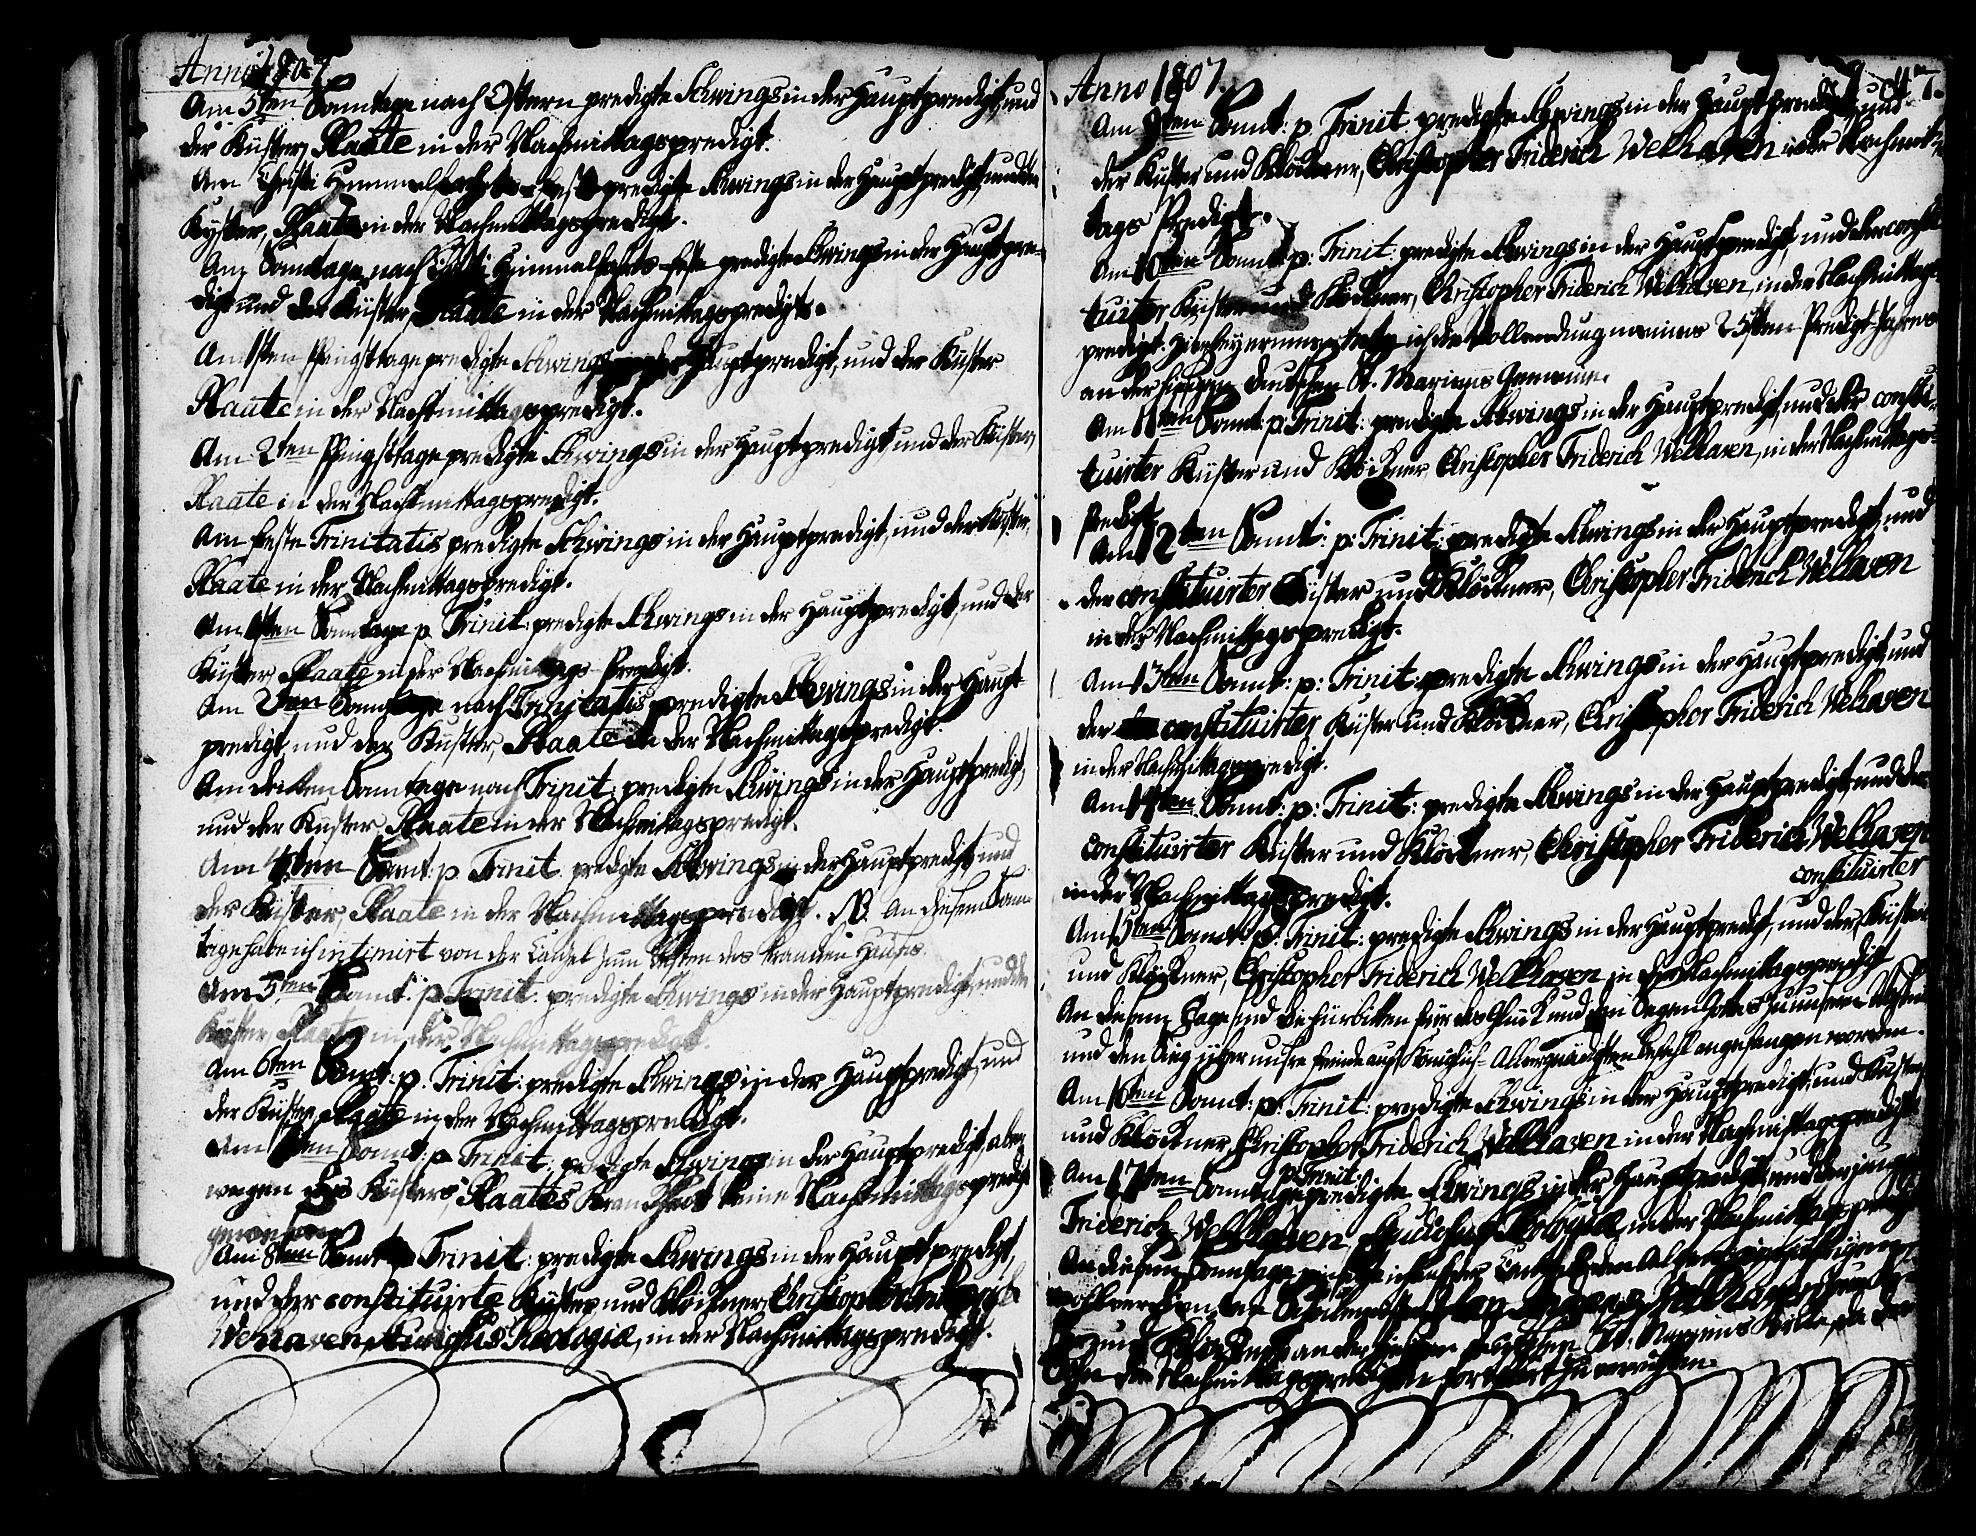 Anno 1807.
Am 5ten Sonntage nach Ostern predigte Schwings in der Hauptpredigt, und
der Küster, Plaate in der Nachmittagspredigt.
Am Christi Himmelfahrts-Feste predigte Schwings in der Hauptpredigt, und der
Küster, Plaate in der Nachmittagspredigt.
Am Sonntage nach Christi Himmelfahrts-Feste predigte Schwings in der Hauptpre-
digt und der Küster, Plaate in der Nachmittagspredigt.
Am 1sten Pfingsttage predigte Schwings Hauptpredigt, und der Küster
Plaate in der Nachmittagspredigt.
Am 2ten Pfingsttage predigte Schwings in der Hauptpredigt, und der Küster,
Plaate in der Nachmittagspredigt.
Am Feste Trinitatis predigte Schwings in der Hauptpredigt, und der Küster,
Plaate in der Nachmittagspredigt.
Am 1sten Sonntage p. Trinit: predigte Schwings in der Hauptpredigt, und der
Küster, Plaate in der Nachmittags-Predigt.
Am 2ten Sonntage nach Trinitatis predigte Schwings in der Haupt-
predigt, und der Küster, Plaate in der Nachmittagspredigt.
Am dritten Sonntage nach Trinit: predigte Schwings in der Hauptpredigt,
und der Küster, Plaate in der Nachmittagspredigt.
Am 4ten Sonnt: p. Trinit: predigte Schwings in der Hauptpredigt, und
der Küster, Plaate in der Nachmittagspredigt. NB. An diesem Sonn-
tage habe ich intimirt von der Canzel zum Besten des Kranken Hauses.
Am 5ten Sonnt: p. Trinit: predigte Schwings in der Hauptpredigt, und der
Küster, Plaate in der Nachmittagspredigt.
Am 6ten Sonnt: p. Trinit: predigte Schwings in der Hauptpredigt, und
der Küster, Plaate in der Nachmittagspredigt.
Am 7ten Sonnt: p. Trinit: predigte Schwings in der Hauptpredigt, aber
wegen des Küsters, Plaates Krankheit keine Nachmittagspredigt
gewesen
Am 8ten Sonnt: p. Trinit: predigte Schwings in der Hauptpredigt,
und der constituirte Küster und Klöckner, Christopher Friderich
Welhaven, Studiosus Theologiæ, in der Nachmittagspredigt.
Anno 1807.
Am 9ten Sonnt: p. Trinit: predigte Schwings in der Hauptpredigt, und
der Küster und Klöckner, Christopher Friderich Welhaven in der Nachmit-
tags Predigt.
Am 10ten Sonnt: p: Trinit: predigte Schwings in der Hauptpredigt, und der consti-
tuirter Küster und Klöckner, Christopher Friderich Welhaven, in der Nachmittags-
predigt. Hierbey ich die Vollendung meines 25sten Predigt-Jahres
an der hiesigen deutschen St. Mariens Gemeine.
Am 11ten Sonnt: p: Trinit: predigte Schwings in der Hauptpredigt, und der consti-
tuirter Küster und Klöckner, Christopher Friderich Welhaven, in der Nachmittags-
Predigt.
Am 12ten Sonnt: p: Trinit: predigte Schwings in der Hauptpredigt, und
der constituirter Küster und Klöckner, Christopher Friderich Welhaven
in der Nachmittagspredigt.
Am 13ten Sonnt: p: Trinit: predigte Schwings in der Hauptpredigt, und
der constituirter Küster und Klöckner, Christopher Friderich Welhaven
in der Nachmittagspredigt.
Am 14ten Sonnt: p: Trinit: predigte Schwings in der Hauptpredigt, und der
constituirter Küster und Klöckner, Christopher Friderich Welhaven
in der Nachmittagspredigt.
constituirter
Am 15ten Sonnt: p: Trinit: predigte Schwings in der Hauptpredigt, und der Küster
und Klöckner, Christopher Friderich Welhaven in der Nachmittagspredigt.
An diesem Tage sind die Fürbitten für das Glück und den Segen Gottes zu unseren Waffen
und den Sieg über unsre Feinde auf Königlich-Allergnädigsten Befehl angefangen worden.
Am 16ten Sonnt: p: Trinit: predigte Schwings in der Hauptpredigt, und Küster
und Klöckner, Christopher Friderich Welhaven in der Nachmittagspredigt.
p. Trinit:
Am 17ten Sonntage predigte Schwings in der Hauptpredigt, und der junge
Friderich Welhaven, Studiosus Theologiæ, in der Nachmittagspredigt.
An diesem Sonntage ich auf der Canzel den
wohlverdienten Welhaven
zum Klöckner an der hiesigen deutschen St. Mariens Kirche, da der
Sohn die Nachmittagspredigten fortfährt zu verrichten.